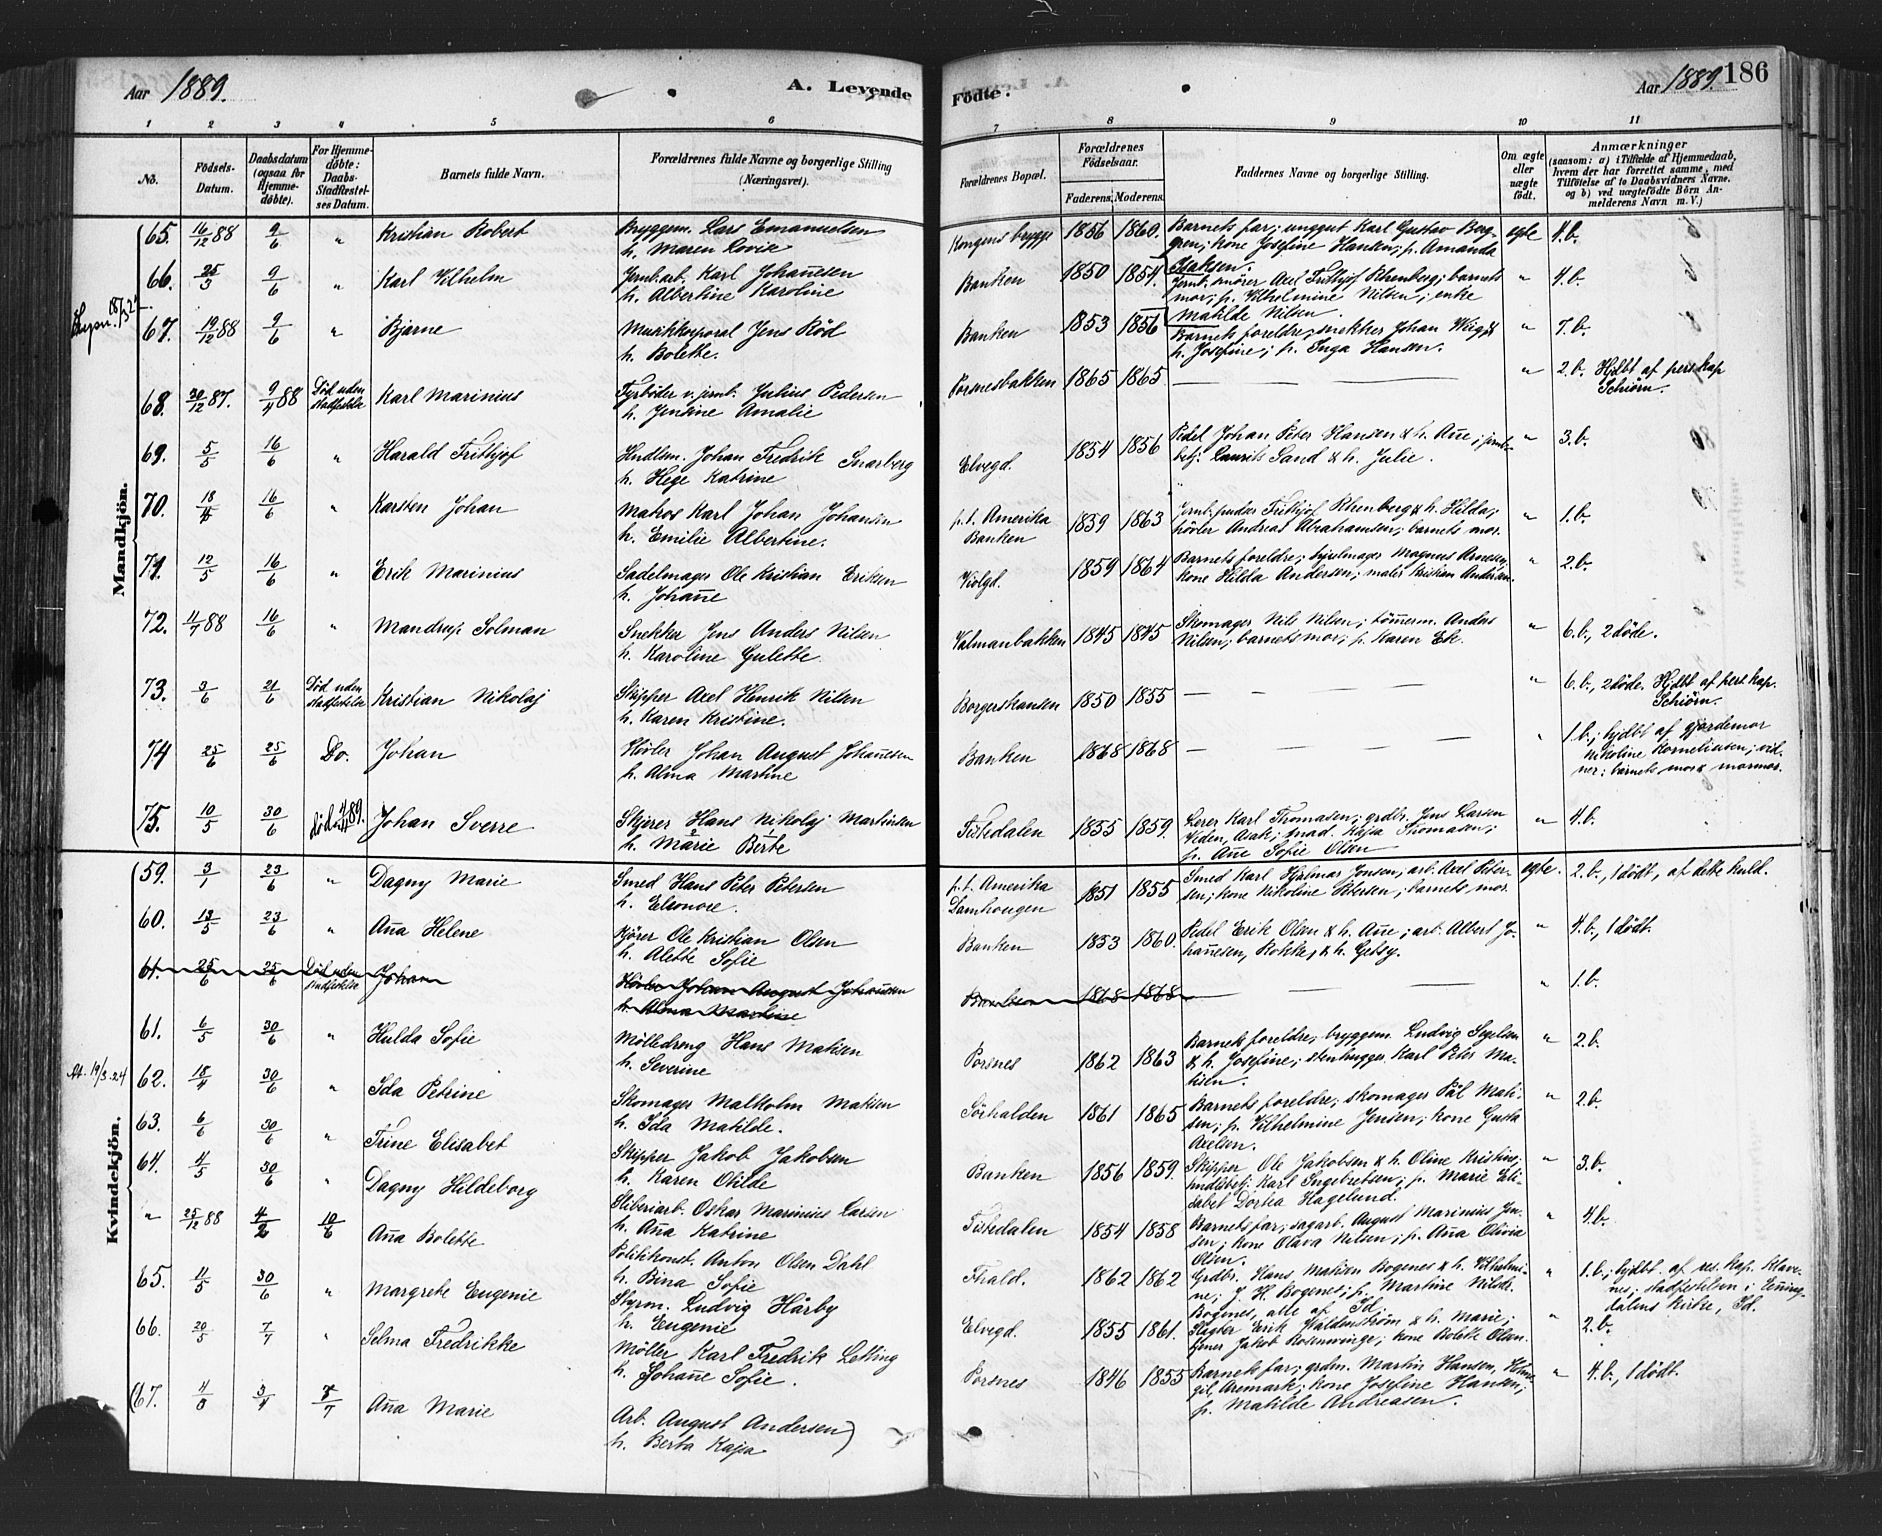 Aar 1889.
A. Levende
Födte.
Aar 1889.
186
1 2 3 4 5 6 7 8 9 10 11
No.
Födsels-Datum.
Daabsdatum (ogsaa for Hjemme-döbte).
For Hjemme-döbte: Daabs-Stadfæstel-ses Datum.
Barnets fulde Navn.
Forældrenes fulde Navne og borgerlige Stilling (Næringsvei).
Forældrenes Bopæl.
Forældrenes Födselsaar.
Faderens. Moderens.
Faddernes Navne og borgerlige Stilling.
Om ægte eller uægte födt.
Anmærkninger
(saasom: a) i Tilfælde af Hjemmedaab, hvem der har forrettet samme, med Tilföielse af to Daabsvidners Navne. og b) ved uægtefödte Börn An-melderens Navn m. V.)
Mandkjön.
65. 16/12 88 9/6 " Kristian Robert Bryggem. Lars Emanuelsen
h. Maren Lovise Kongens brygge 1856 1860. Barnets far; unggut Karl Gustav Berg-
gren; kone Josefine Hansen; p. Amanda
Isaksen. egte 4.b.
66. 25/3 9/6 " Karl Vilhelm Jernb.arb. Karl Johan̄esen
h. Albertine Karoline Banken 1850 1854. Jernb.smörer Axel Frithjof Rhenberg; barnets
mor; p. Vilhelmine Nilsen; enke
Matilde Nilsen. " 4.b.
67. 19/12 88 9/6 " Bjarne Musikkorporal Jens Röd
h. Bolette. Banken 1853 1856 Barnets foreldre; snekker Johan
h. Josefine; p. Inga Hansen. " 7.b.
68. 30/12 87. 9/4 88 Död uden stadfestelse Karl Marinius Fyrböder v. jernb. Julius Pedersen
h. Jensine Amalie Porsnesbakken 1865 1865 — — — " 2.b. Hjdbt af pers. kap.
Schiörn.
69. 5/5 16/6 " Harald Frithjof Hndlsm. Johan Fredrik Snarberg
h. Hege Katrine Elvegd. 1854 1856 Pedel Johan Peter Hansen & h. An̄e; jernb-
betj. Laurits Sand & h. Julie. " 3.b.
70. 18/4 16/6 " Karsten Johan Matros Karl Johan Johansen
h. Emilie Albertine. p.t. Amerika
Banken 1859 1863 Jernb.pudser Frithjof Rhenberg & h. Hilda;
hövler Andreas Abrahamsen; barnets mor. " 1.b.
71. 12/5 16/6 " Erik Marinius Sadelmager Ole Kristian Eriksen
h. Johan̄e Violgd. 1859 1864 Barnets foreldre; hjulmager Magnus Arnesen,
kone Hilda Andersen; maler Kristian Andersen. " 2.b.
72. 11/7 88 16/6 " Mandrup Solman Snekker Jens Anders Nilsen
h. Karoline Gulette. Valmanbakken 1845 1845 Skomager Nils Nilsen; töm̄erm. Anders
Nilsen; barnets mor; p. Karen Ek. " 6.b., 2 döde.
73. 3/6 21/6 Död uden stadfestelse Kristian Nikolaj Skipper Axel Henrik Nilsen
h. Karen Kristine. Borgerskansen 1850 1855 — — — " 6.b., 2 döde. Hjdbt af pers. kap.
Schiörn.
74 25/6 25/6 Do. Johan Hövler Johan August Johan̄esen
h. Alma Martine Banken 1868 1868 — — — " 1.b.; hjdbt af gjordemor
Nikoline Korneliusen; vid-
ner: barnets mor & mormor.
75. 10/5 30/6 Död 89. Johan Sverre Skjörer Hans Nikolaj Martinsen
h. Marie Berte Tistedalen 1855 1859. Lerer Karl Thomasen; grdbr. Jens Larsen
Viden, Asak; mad. Kaja Thomasen;
p. An̄e Sofie Olsen " 4.b.
Kvindekjön.
59. 3/1 23/6 " Dagny Marie Smed Hans Peter Petersen
h. Eleonore. p.t. Amerika
Damhougen 1851 1855 Smed Karl Hjalmar Jonsen; arb. Axel Peter-
sen; kone Nikoline Petersen; barnets mor. egte. 2.b., 1 dödt, af dette kuld.
60. 13/5 23/6 " An̄a Helene Kjörer Ole Kristian Olsen
h. Alette Sofie Banken 1853 1860. Pedel Erik Olsen & h. An̄e; arb. Albert Jo-
han̄esen, Rokke, & h. Getsy. " 4.b., 1 dödt.
61. 25/6 25/6 Död uden stadfestelse Johan Hövler Johan August Johan̄esen
h. Alma Martine Banken 1868 1868 — — — " 1.b.
61. 6/5 30/6 " Hulda Sofie Mölledreng Hans Matisen
h. Severine Porsnes 1862 1863 Barnets foreldre; bryggem. Ludvig Segelsen
& h. Josefine; stenhugger Karl Peter Ma-
tisen. " 2.b.
62. 18/4 30/6 " Ida Petrine Skomager Malkolm Matisen
h. Ida Matilde. Sörhalden 1861 1865 Barnets foreldre; skomager Pål Mati-
sen; p. Vilhelmine Jensen; kone Gusta
Axelsen. " 2.b.
63. 6/6 30/6 " Trine Elisabet Skipper Jakob Jakobsen
h. Karen Otilde Banken 1856 1859. Skipper Ole Jakobsen & h. Oline Kristine;
hndlsbetj. Karl Ingebretsen; p. Marie Eli-
sabet Dortea Hagelund. " 3.b.
64. 4/5 30/6 " Dagny Hildeborg Sliberiarb. Oskar Marinius Larsen
h. An̄a Katrine Tistedalen 1854 1858 Barnets far; sagarb. August Marinius Jen-
sen; kone Olava Nilsen; p. An̄a Olivia
Olsen. " 4.b.
" 25/12 88 4/2 10/6 An̄a Bolette Politikonst. Anton Olsen Dahl
h. Bina Sofie Thald. 1862 1862 Grdbr. Hans Matisen Bogenes & h. Vilhelmi-
ne; J. H. Bogenes; p. Martine Nilsdr.
Bogenes, alle af Id. " 1.b.; hjdbt af res. kap. Klave-
nes; stadfestelsen i Ennings-
dalens kirke, Id.
65. 11/5 30/6 " Margrete Eugenie Styrm. Ludvig Hårby
h. Eugenie Elvegd. 1855 1861. Slagter Erik Waldenström & h. Marie;
Jakob Rosenvinge; kone Bolette Olsen. " 2.b.
66. 20/5 7/7 " Selma Fredrikke Möller Karl Fredrik Letting
h. Johan̄e Sofie. Porsnes 1846 1855 Barnets far; grdm. Martin Hansen,
Aremark; kone Josefine Hansen;
p. Matilde Andreasen. " 4.b., 1 dödt.
(67. 4/8 3/4 7/7 An̄a Marie Arb. August Andersen)
h. Berta Kaja
At. 19/3.24